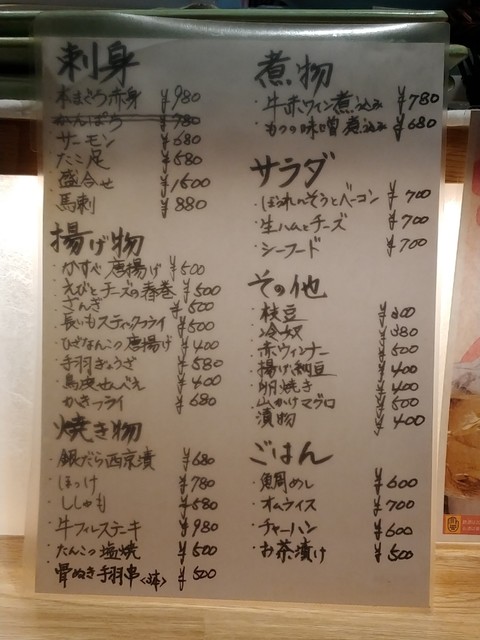 刺身
本まぐろ赤身 ¥980
かんぱち ¥780
サーモン ¥680
たこ足 ¥580
盛合せ ¥1500
馬刺 ¥880
揚げ物
・かすべ唐揚げ ¥500
・えびとチーズの春巻 ¥500
・ざんぎ ¥500
・長いもスティックフライ ¥500
・ひざなんこつ唐揚げ ¥400
・手羽ぎょうざ ¥580
¥400
・かきフライ ¥680
焼き物
・銀だら西京漬 ¥680
・ほっけ ¥780
・ししゃも ¥580
・牛フィレステーキ ¥980
・たんこつ塩焼 ¥500
・骨ぬき手羽串 ¥500
煮物
・牛赤ワイン煮込み ¥780
・もつの味噌煮込み ¥680
サラダ
・ほうれんそうとベーコン ¥700
・生ハムとチーズ ¥700
・シーフード ¥700
その他
・枝豆 ¥300
・冷奴 ¥380
・赤ウィンナー ¥500
・揚げ納豆 ¥400
・卵焼き ¥400
・山かけマグロ ¥500
・漬物 ¥400
ごはん
・鯛めし ¥600
・オムライス ¥700
・チャーハン ¥600
・お茶漬け ¥500